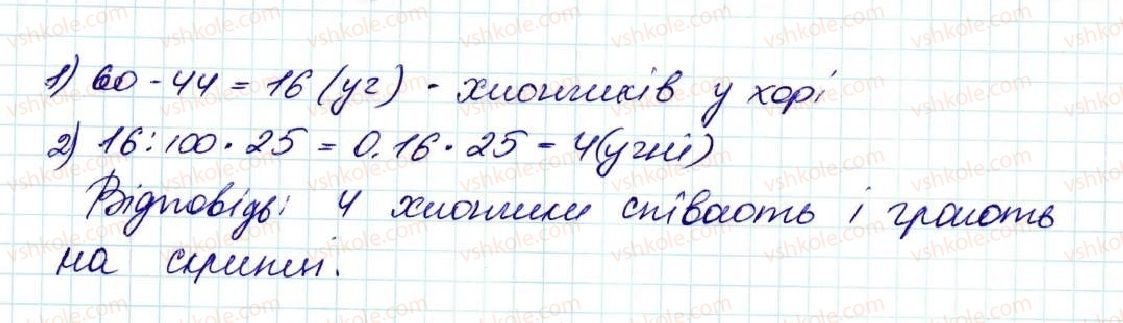 1) 60 - 44 = 16 (уч) - хлопчиків у хорі
2) 16 : 100 · 25 = 0.16 · 25 = 4 (учні)
Відповідь: 4 хлопчики співають і грають
на скрипці.